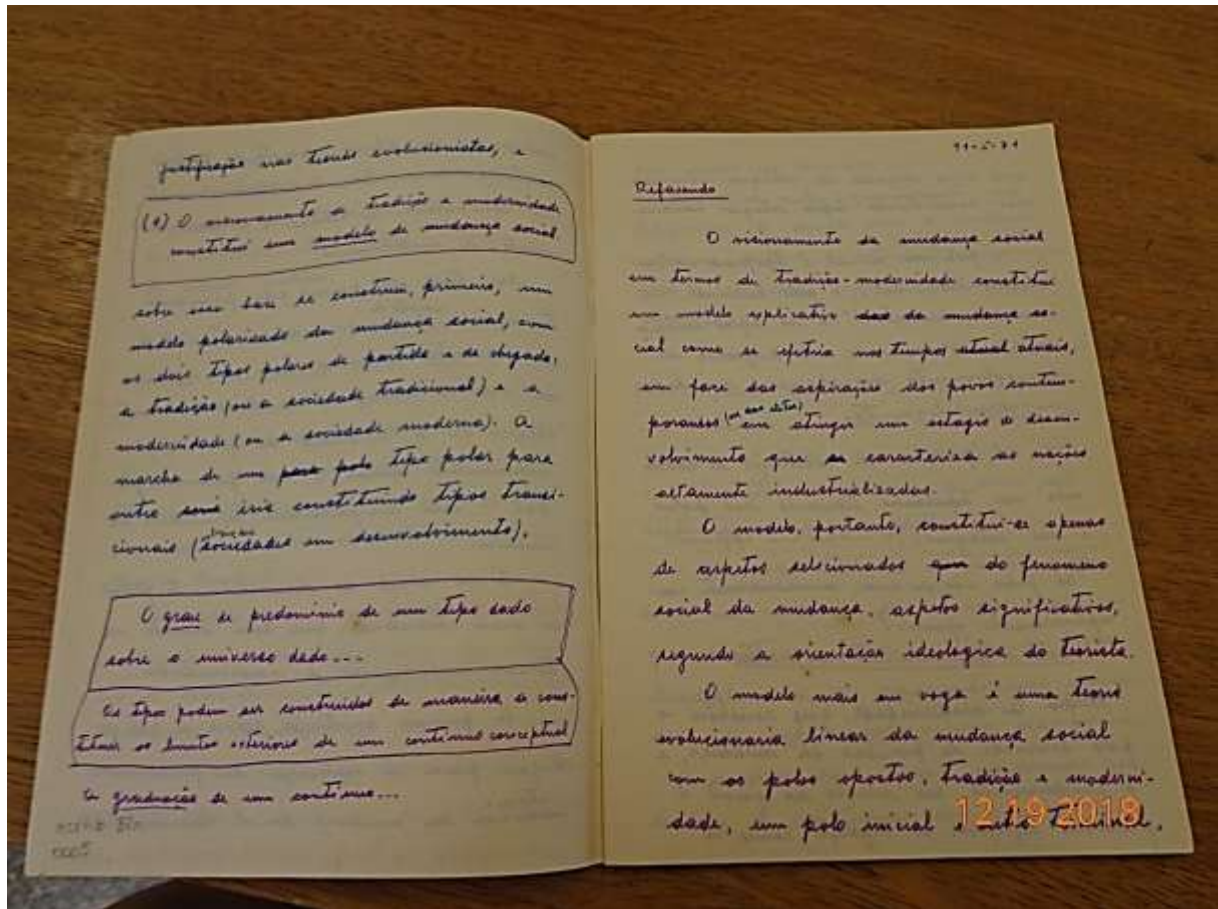 justificação nas teorias evolucionistas, e
(1) O visionamento de tradição e modernidade
constitui um modelo de mudança social
sobre essa base se constrói, primeiro, um
modelo polarizado da mudança social, com
os dois tipos polares de partida e de chegada,
a tradição (ou a sociedade tradicional) e a
modernidade (ou a sociedade moderna). A
marcha de um para polo tipo polar para
outro seria iria constituindo tipos transi-
cionais (sociedades em desenvolvimento).
O grau de predomínio de um tipo dado
sobre o universo dado...
Os tipos podem ser construidos de maneira a cons-
tituir os limites exteriores de um contínuo conceptual
a graduação de um contínuo...
0005
11-5-71
Refazendo
O visionamento da mudança social
em termos de tradição-modernidade constitui
um modelo explicativo da mudança so-
cial como se efetua nos tempos atual atuais,
em face das aspirações dos povos contem-
porâneos (ou suas elites) em atingir um estagio de desen-
volvimento que caracteriza as nações
altamente industrializadas.
O modelo, portanto, constitui-se apenas
de aspetos selecionados que do fenomeno
social da mudança, aspetos significativos,
segundo a orientação ideologica do teorista.
O modelo mais em voga é uma teoria
evolucionaria linear da mudança social
com os polos opostos, tradição e moderni-
dade, um polo inicial e outro terminal,
12 19 2018